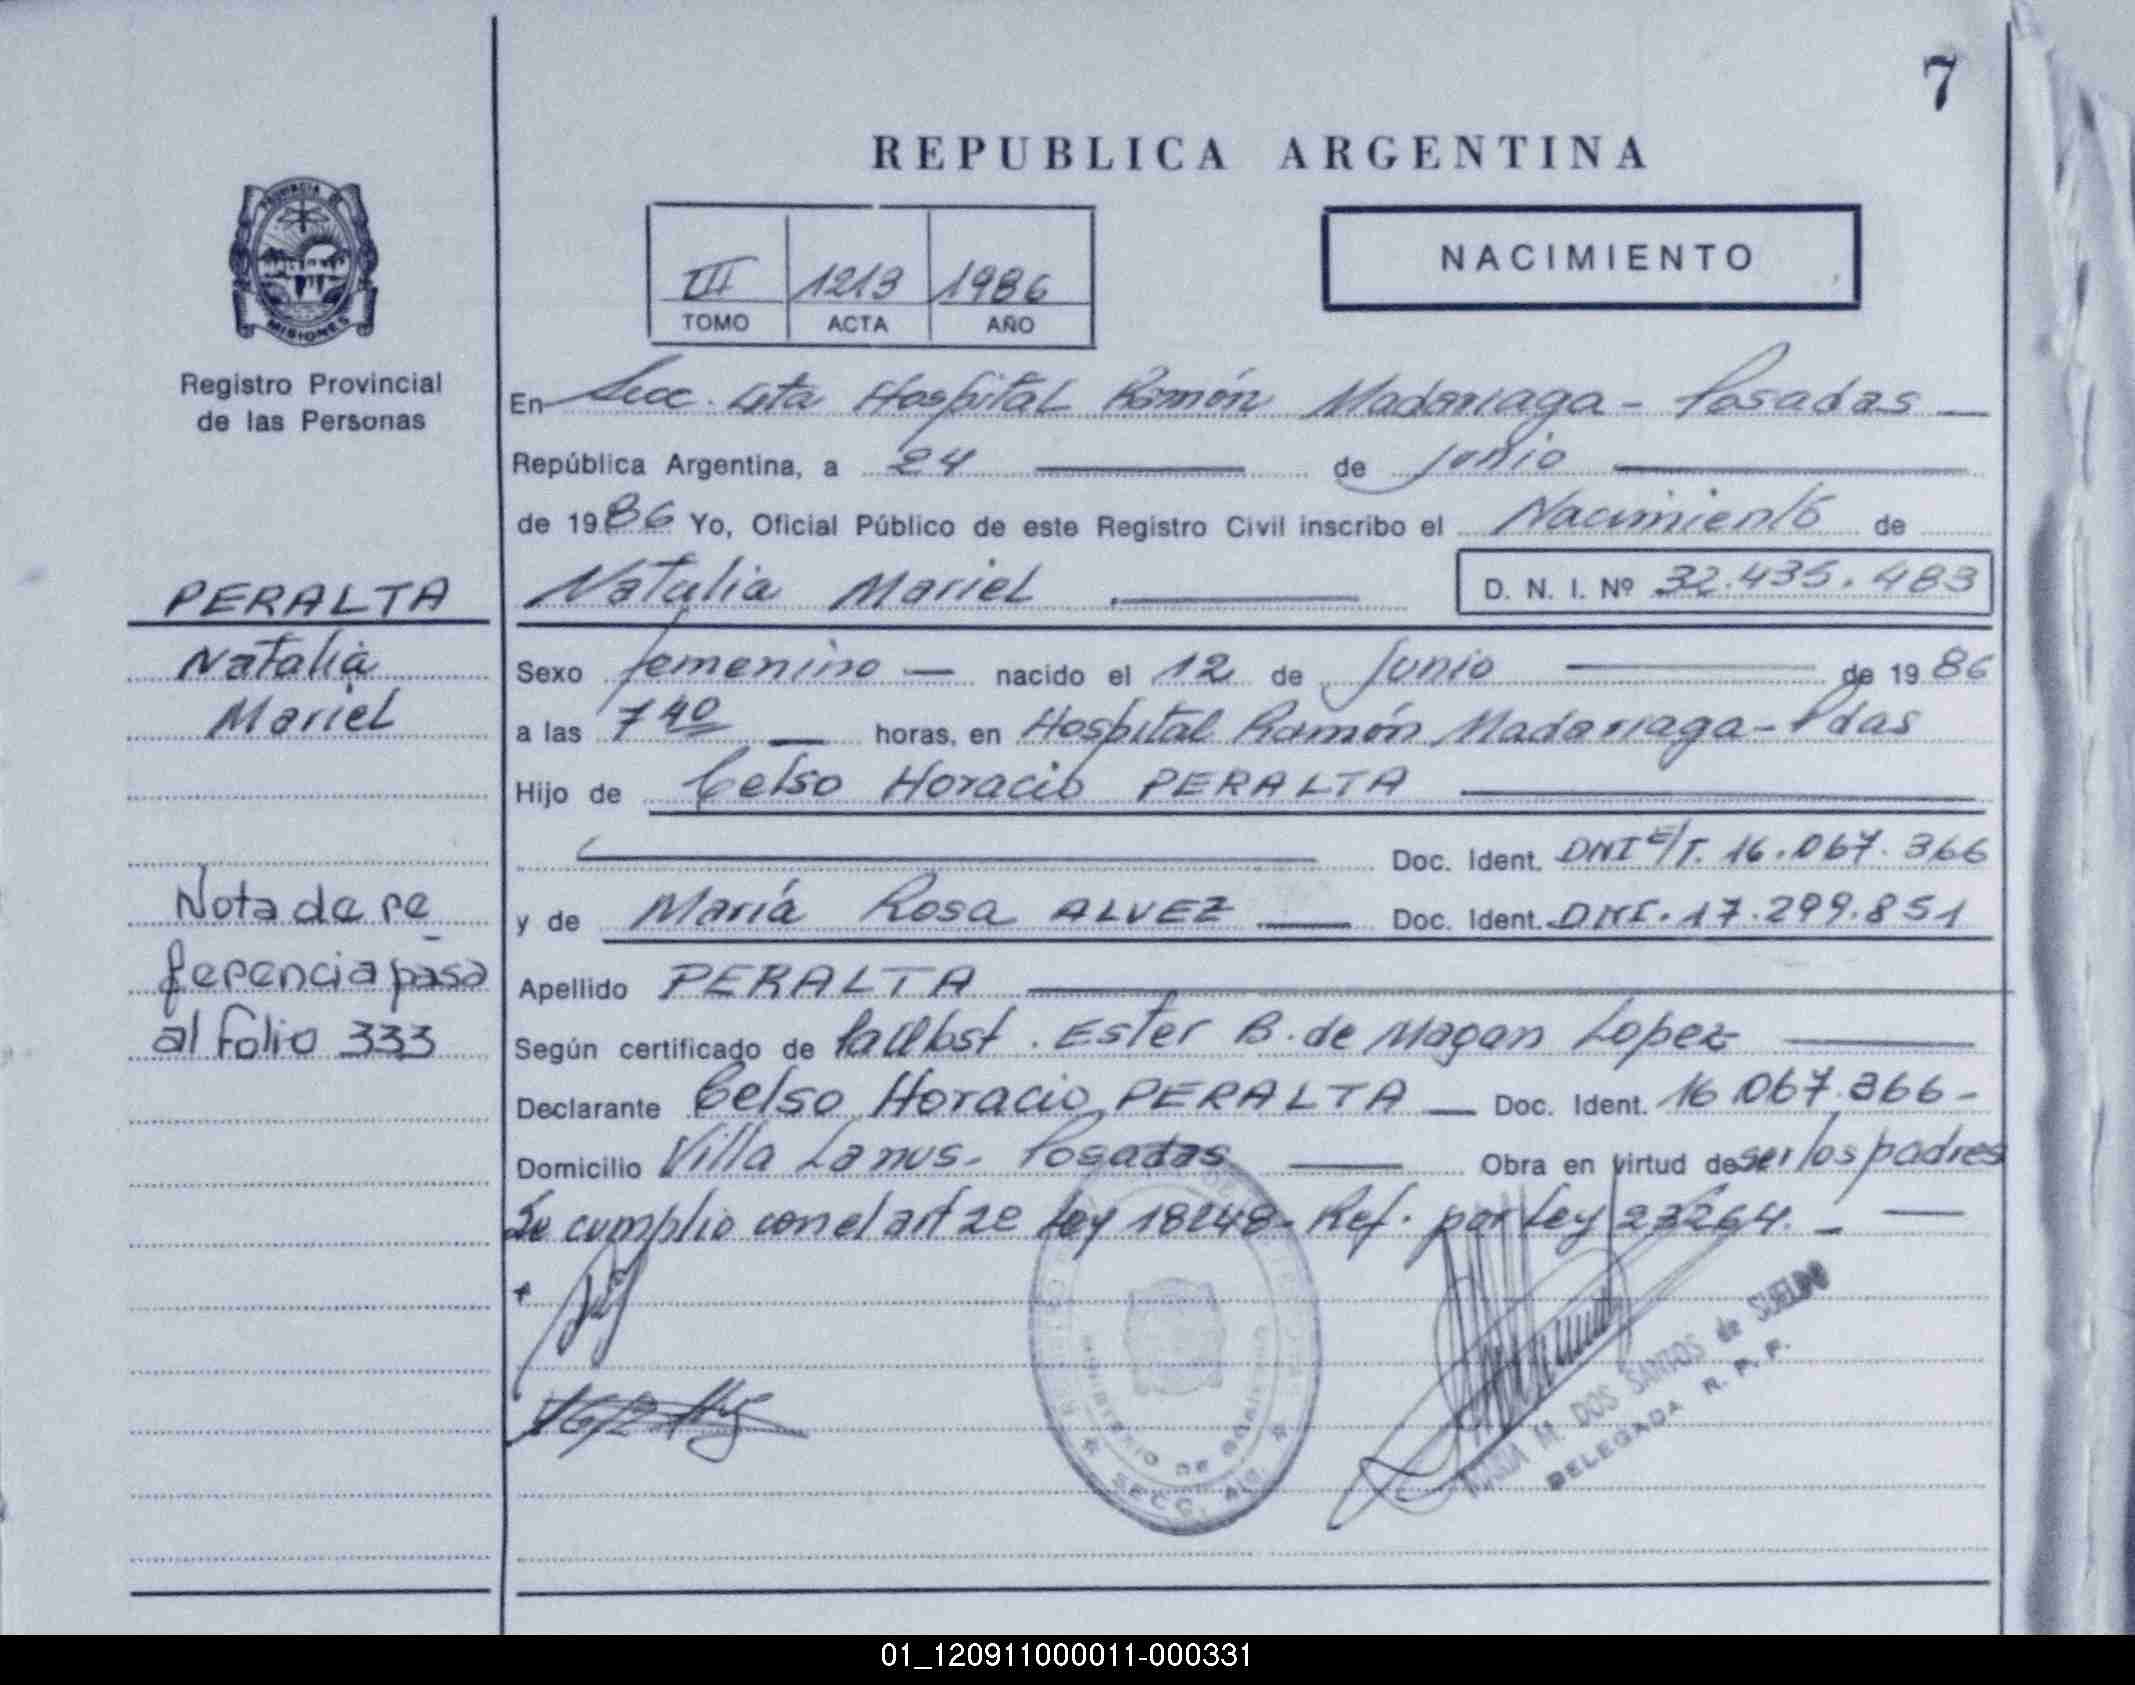 7
REPUBLICA ARGENTINA
PROVINCIA DE
MISIONES
III 1213 1986
TOMO ACTA AÑO
NACIMIENTO
Registro Provincial
de las Personas
En Secc. 4ta Hospital Ramón Madariaga - Posadas
República Argentina, a 24 de Junio
de 1986 Yo, Oficial Público de este Registro Civil inscribo el Nacimiento de
Natalia Mariel D. N. I. Nº 32.435.483
PERALTA
Natalia
Mariel
Sexo femenino — nacido el 12 de Junio de 1986
a las 7 40 horas, en Hospital Ramón Madariaga - Pdas
Hijo de Celso Horacio PERALTA
Doc. Ident. DNI E/T. 16.067.366
y de María Rosa ALVEZ Doc. Ident. DNI. 17.299.851
Nota de re
ferencia pasa
al folio 333
Apellido PERALTA
Según certificado de Ester B. de Magan Lopez
Declarante Celso Horacio PERALTA — Doc. Ident. 16.067.366-
Domicilio Villa Lanus - Posadas Obra en virtud de ser los padres
Se cumplio con el art 2e Ley 18248 - Ref. por Ley 23264. -
MINISTERIO DE GOBIERNO
SECC. 4ta.
M. DOS SANTOS de SUELDO
DELEGADA R. P. P.
01_120911000011-000331